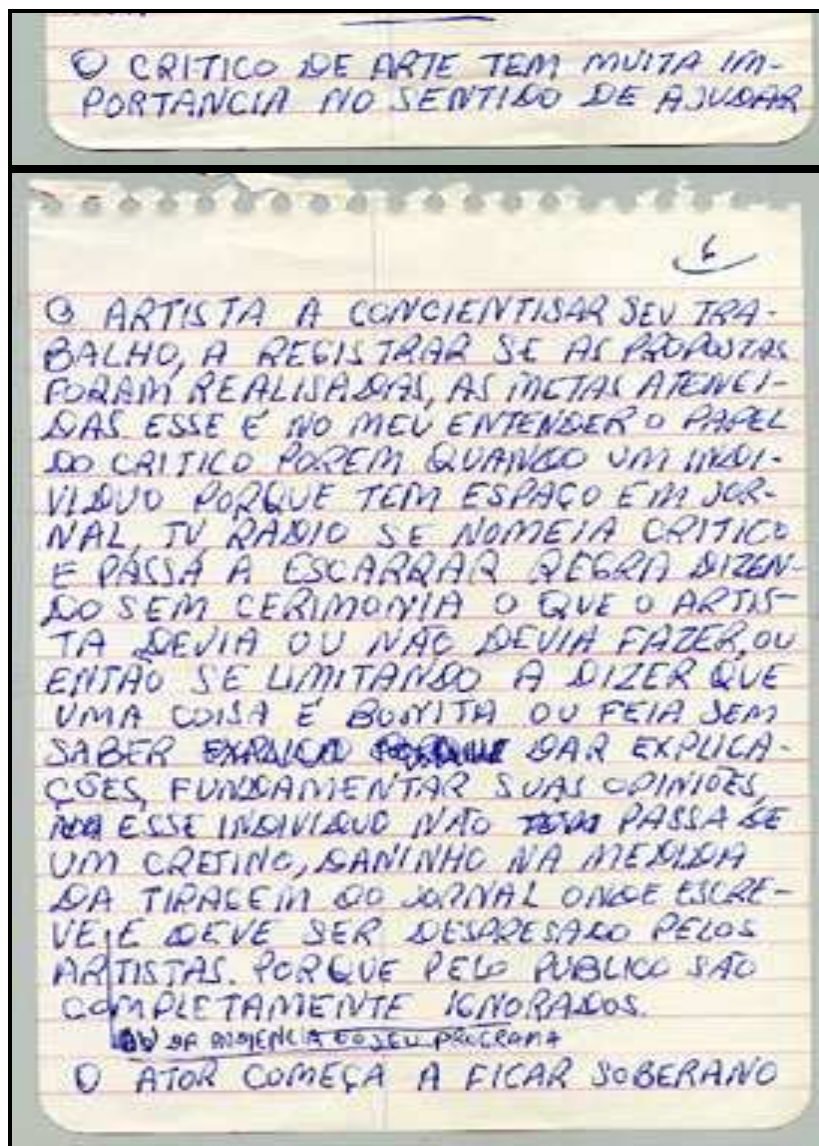 O CRITICO DE ARTE TEM MUITA IM-
PORTANCIA NO SENTIDO DE AJUDAR
6
O ARTISTA A CONCIENTISAR SEU TRA-
BALHO, A REGISTRAR SE AS PROPOSTAS
FORAM REALISADAS, AS METAS ATENGI-
DAS ESSE É NO MEU ENTENDER O PAPEL
DO CRITICO POREM QUANDO UM INDI-
VIDUO PORQUE TEM ESPAÇO EM JOR-
NAL, TV RADIO SE NOMEIA CRITICO
E PASSA A ESCARRAR REGRA DIZEN-
DO SEM CERIMONIA O QUE O ARTIS-
TA DEVIA OU NÃO DEVIA FAZER, OU
ENTÃO SE LIMITANDO A DIZER QUE
UMA COISA É BONITA OU FEIA SEM
SABER DAR EXPLICA-
ÇÕES, FUNDAMENTAR SUAS OPINIÕES,
ESSE INDIVIDUO NÃO PASSA DE
UM CRETINO, DANINHO NA MEDIDA
DA TIRAGEM DO JORNAL ONDE ESCRE-
VE E DEVE SER DESPRESADO PELOS
ARTISTAS. PORQUE PELO PUBLICO SÃO
COMPLETAMENTE IGNORADOS.
OU DA AUDIENCIA DO SEU PROGRAMA
O ATOR COMEÇA A FICAR SOBERANO